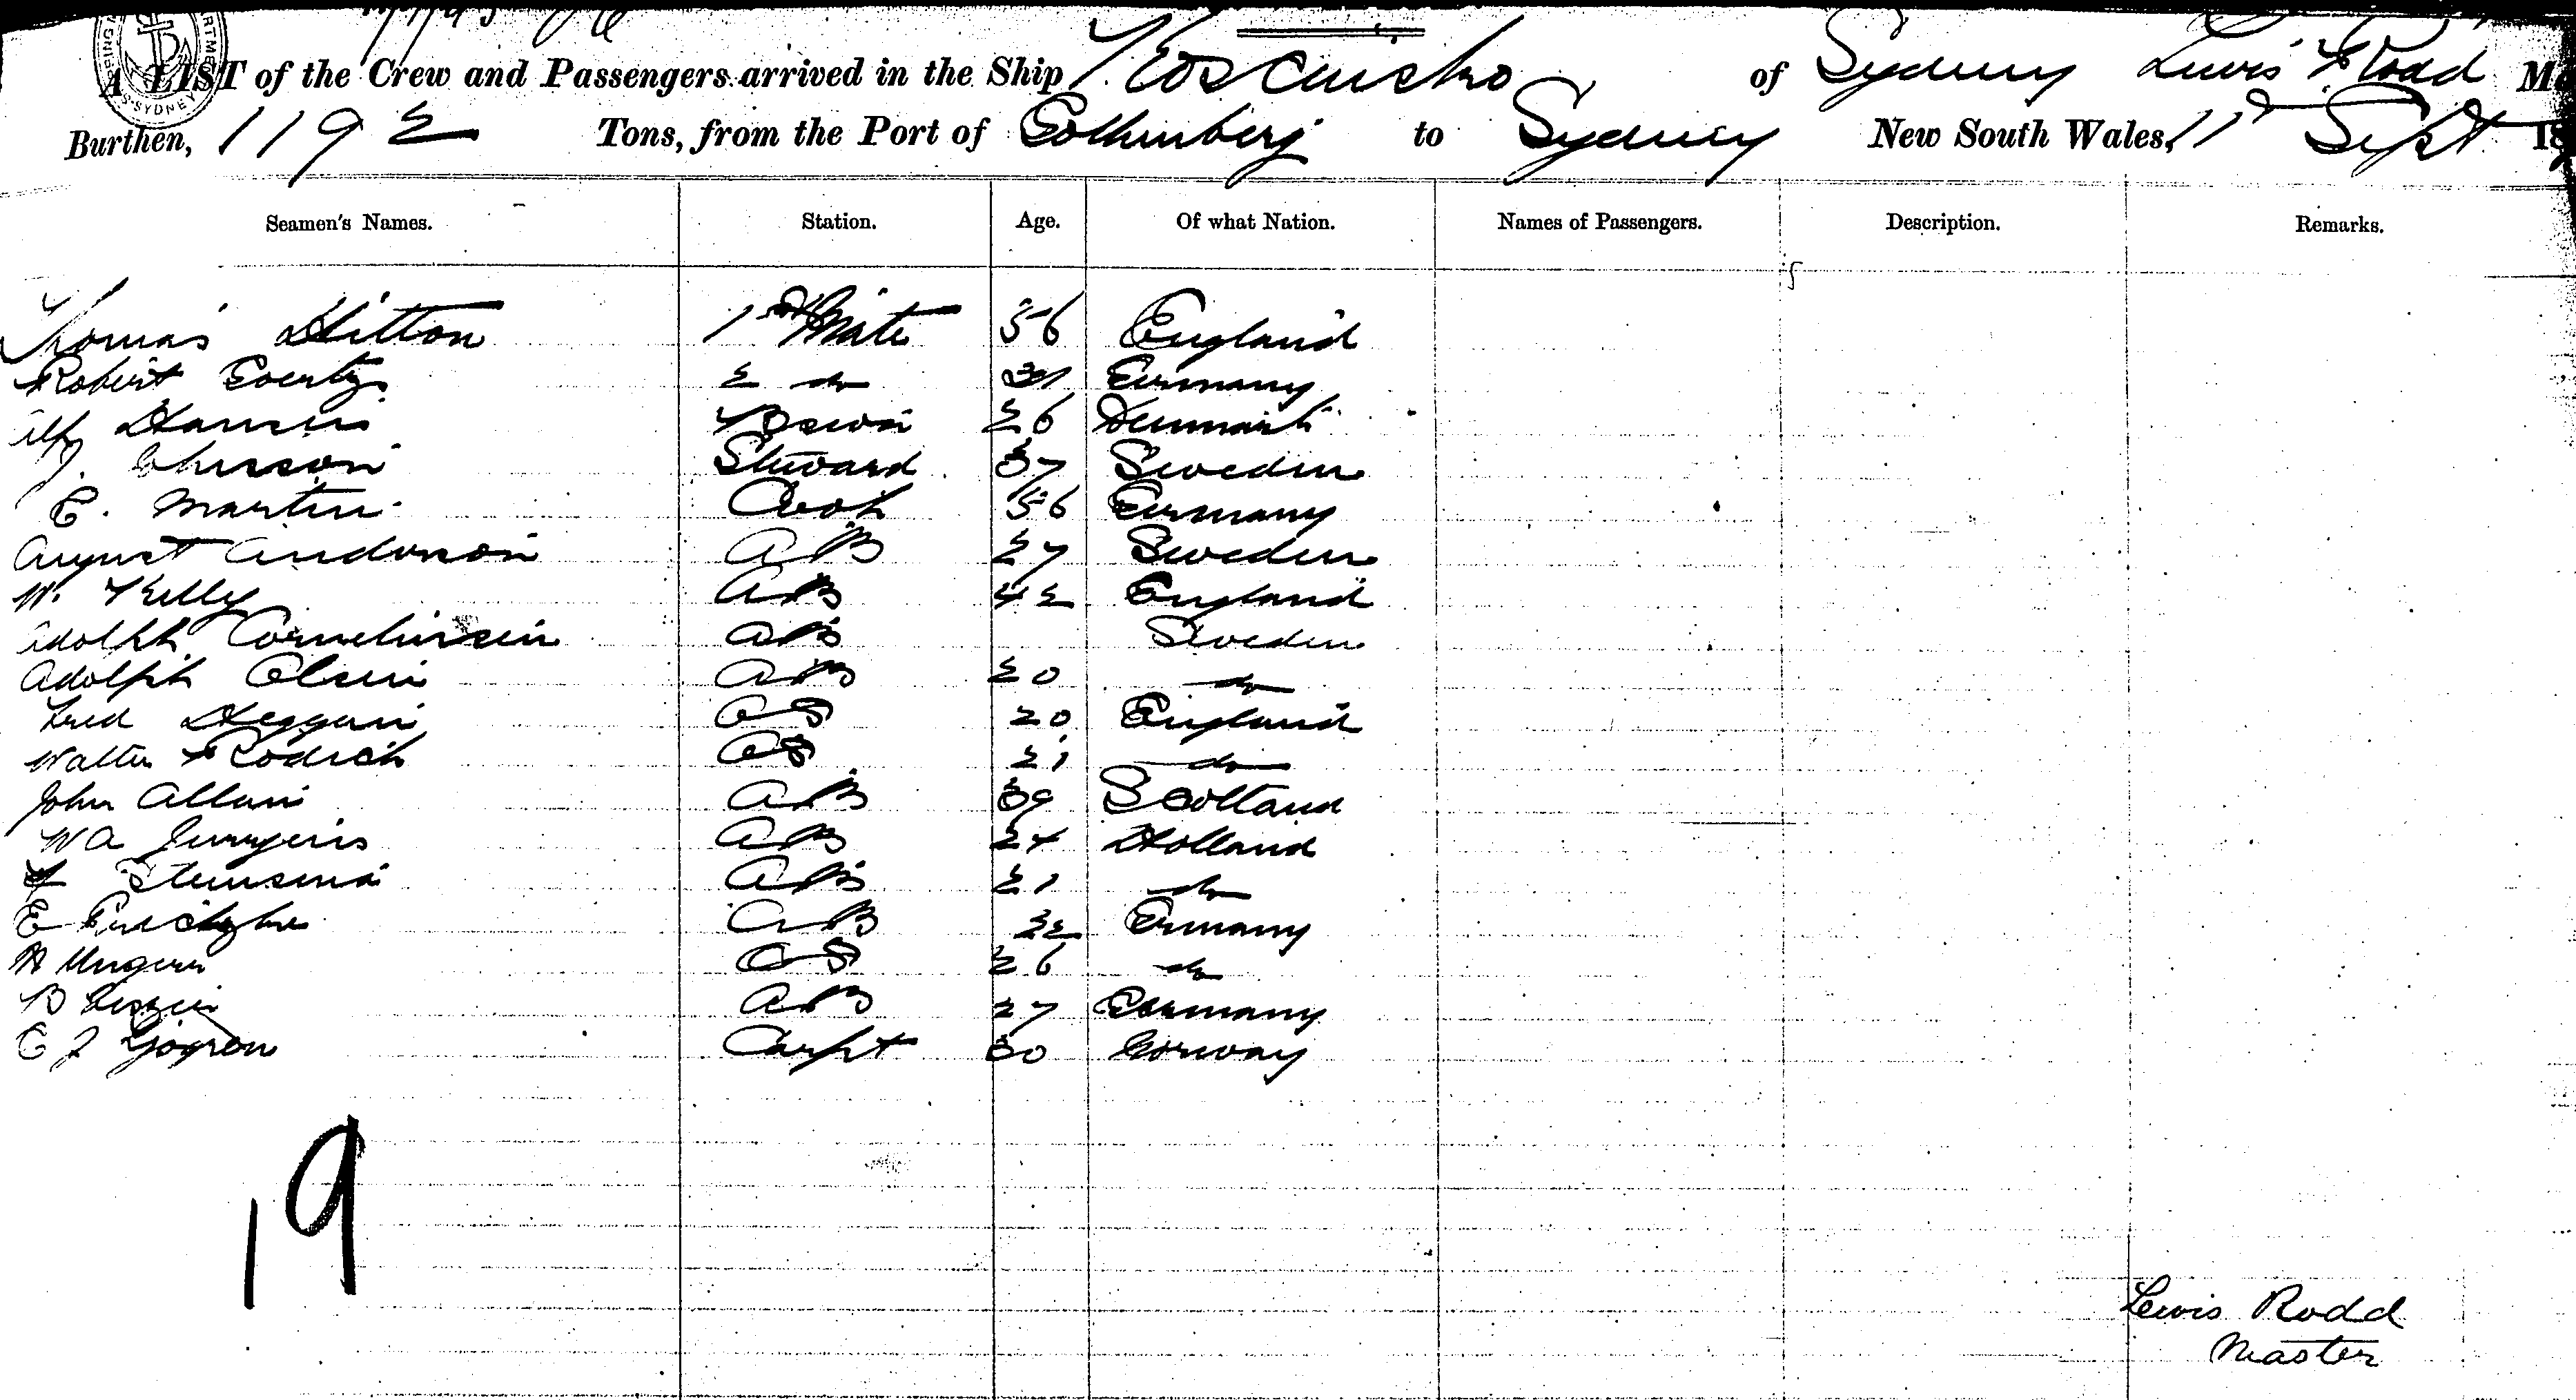 A LIST of the Crew and Passengers arrived in the Ship Kosciusko of Sydney Lewis Rodd
Burthen, 1192 Tons, from the Port of Gothenberg to Sydney New South Wales, 11 Sept 18
Seamen's Names. Station. Age. Of what Nation. Names of Passengers. Description. Remarks.
Thomas Hitton 1st Mate 56 England
Robert Goertz 2 do Germany
Alf Hansen Boswn 26 Denmark
J. Steward 37 Sweden
E. Martin Cook 56 Germany
August Anderson AB 27 Sweden
W. Kelly AB 42 England
Adolph Corneliusen AB Sweden
Adolph Olsen AB 20 do
Fred OS 20 England
Walter Rodick OS 21 do
John Allan AB 39 Scotland
W A Jurrjens AB 24 Holland
AB 21 do
E AB 22 Germany
A Ungern OS 26 do
B AB 27 Germany
C J Carpt 30 Norway
19
Lewis Rodd
Master